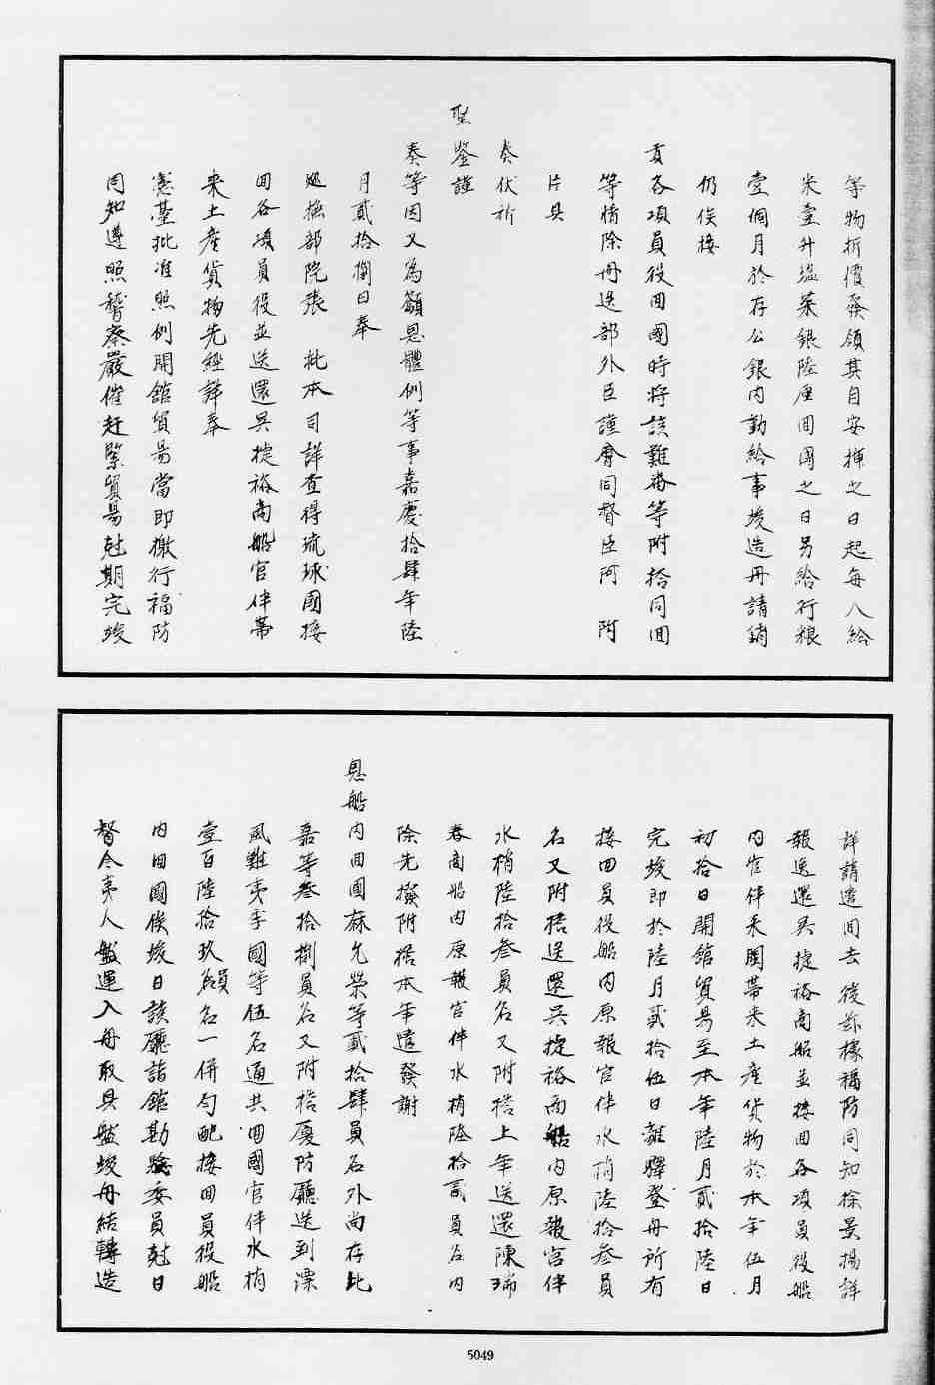 等物折價發領其自安插之日起每人給
米壹升塩菜銀陸厘回國之日另給行粮
壹個月於存公銀内動給事竣造册請銷
仍俟接
貢各項員役回國時將該難番等附搭同回
等情除册送部外臣謹會同督臣阿 附
片具
奏伏祈
聖鑒謹
奏等因又為籲恩體例等事嘉慶拾肆年陸
月貳拾捌日奉
巡撫部院張 批本司詳查得琉球國接
回各項員役並送還吳捷裕商船官伴帶
來土產貨物先經詳奉
憲臺批准照例開館貿易當即檄行福防
同知遵照稽察嚴催赶緊貿易尅期完竣
詳請遣回去後茲據福防同知徐景揚詳
報送還吳捷裕商船並接回各項員役船
内官伴来閩帶来土產貨物於本年伍月
初拾日開館貿易至本年陸月貳拾陸日
完竣即於陸月貳拾伍日離驛登舟所有
接回員役船内原報官伴水梢陸拾叁員
名又附搭送還吳捷裕商船内原報官伴
水梢陸拾叁員名又附搭上年送還陳瑞
春商船内原報官伴水梢陸拾貳員名内
除先撥附搭本年遣發謝
恩船内回國麻允榮等貳拾肆員名外尚存比
嘉等叁拾捌員名又附搭厦防廳送到漂
風難夷李國等伍名通共回國官伴水梢
壹百陸拾玖員名一併勻配接回員役船
内回國俟竣日該廳詣館勘驗委員尅日
督令夷人盤運入舟取具盤竣册結轉造
5049